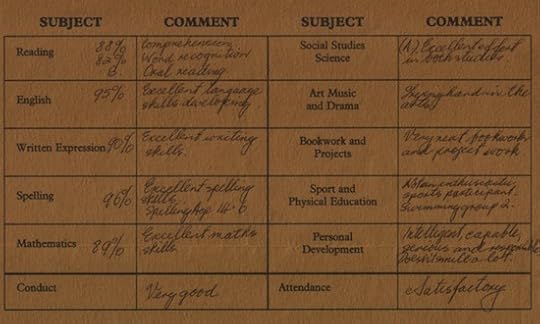 SUBJECT COMMENT SUBJECT COMMENT
Reading
88%
82%
B.
Comprehension.
Word recognition
Oral reading.
Social Studies
Science
(A). Excellent effort
in both studies
English 95%
Excellent language
skills developing.
Art Music
and Drama
hand in the
arts.
Written Expression 90%
Excellent writing
skills.
Bookwork and
Projects
Very neat bookwork
and project work
Spelling 96%
Excellent spelling
skills.
Spelling Age 14.6
Sport and
Physical Education
Not an enthusiastic
sports participant.
Swimming group 2.
Mathematics 89%
Excellent maths
skills
Personal
Development
Intelligent, capable,
generous and responsible
Doesn't smile a lot.
Conduct
Very good
Attendance
Satisfactory